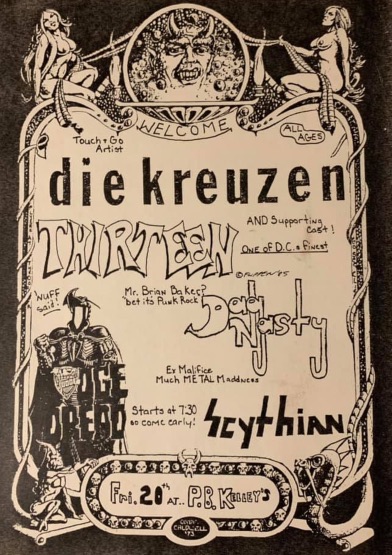 WELCOME
Touch + Go
Artist
ALL
AGES
die kreuzen
THIRTEEN
AND Supporting
Cast!
One of D.C.s Finest
Mr. Brian Baker?
bet its Punk Rock
Dag
Nasty
'Nuff
Said!
DGE
DREDD
Ex Malifice
Much METAL Maddness
Starts at 7:30
so come early!
Scythian
Fri. 20th AT.. P.B. KELLEY'S
CALDWELL
'73